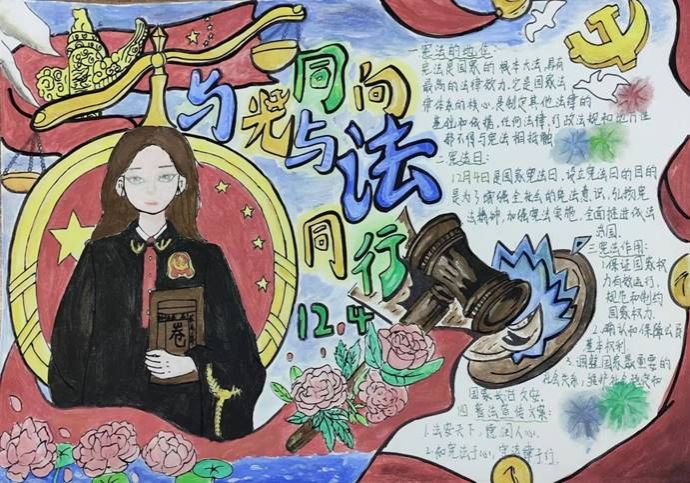 与光同向
与法
同行
12.4
卷
一宪法的地位:
宪法是国家的根本大法,具有
最高的法律效力,它是国家法
律体系的核心,是制定其他法律的
基础和依据,任何法律、行政法规和地方性
都不得与宪法相抵触
二宪法日:
12月4日是国家宪法日,设立宪法日的目的
是为了增强全社会的宪法意识,弘扬宪
法精神,加强宪法实施,全面推进依法
治国.
三宪法作用:
1.保证国家权
力有效运行,
规范和制约
国家权力.
2.确认和保障公民
基本权利
3.调整国家最重要的
社会关系,维护社会稳定和
国家长治久安.
四宪法宣传文案:
1.法安天下,德润人心.
2.知宪法于心,守法律于行.